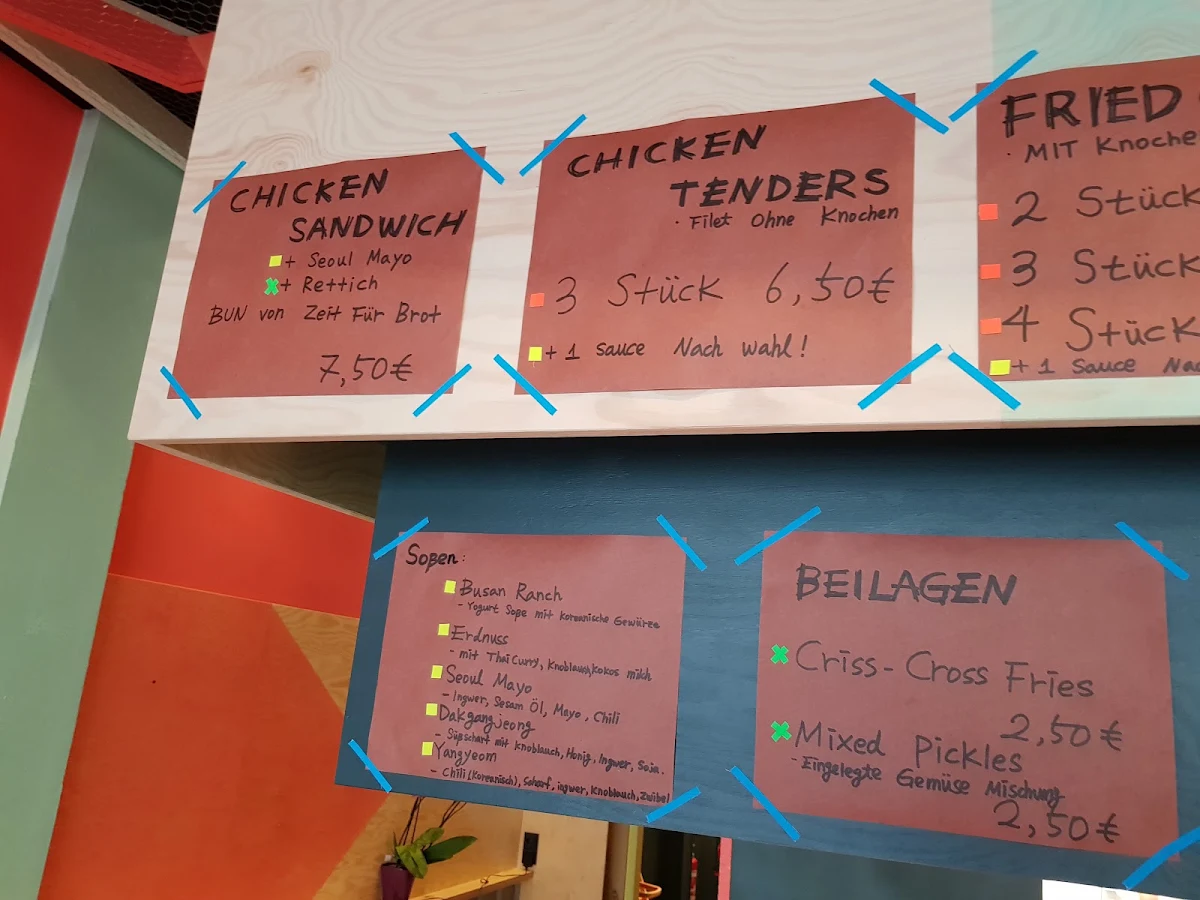 CHICKEN
SANDWICH
+ Seoul Mayo
+ Rettich
BUN von Zeit Für Brot
7,50€
CHICKEN
TENDERS
· Filet Ohne Knochen
3 Stück 6,50€
+ 1 sauce Nach wahl!
FRIED
· MIT Knoche
2 Stück
3 Stück
4 Stück
+ 1 Sauce Nac
Soßen:
Busan Ranch
- Yogurt Soße mit Koreanische Gewürze
Erdnuss
- mit Thai Curry, Knoblauch, Kokos milch
Seoul Mayo
- Ingwer, Sesam Öl, Mayo, Chili
Dakgangjeong
- Süßscharf mit Knoblauch, Honig, Ingwer, Soja.
Yangyeom
- Chili (Koreanisch), Scharf, ingwer, Knoblauch, Zwibel
BEILAGEN
Criss-Cross Fries
2,50€
Mixed Pickles
- Eingelegte Gemüse Mischung
2,50€